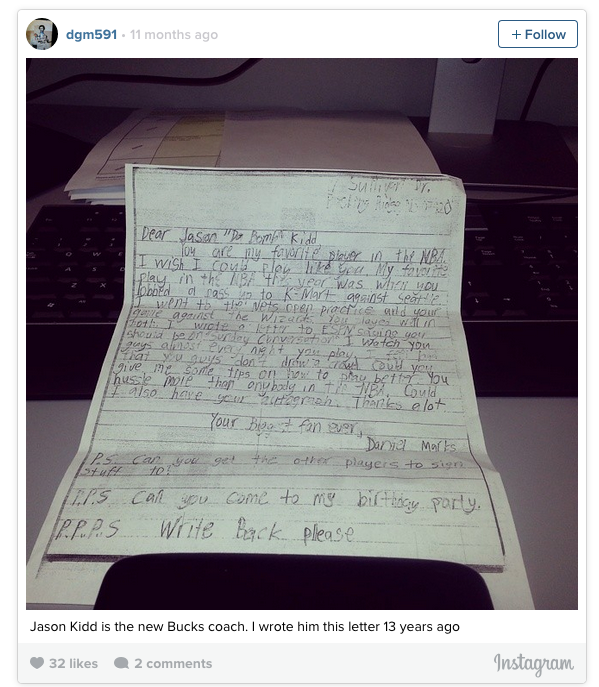 dgm591 • 11 months ago
+ Follow
Sullivan Dr.
Dear Jason "Da Bomb" Kidd
You are my favorite player in the NBA.
I wish I could play like you. My favorite
play in the NBA this year was when you
lobbed a pass up to K-Mart against Seattle.
I went to the Nets open practice and your
game against the Wizards. You played well in
both. I wrote a letter to ESPN saying you
should be on Sunday Conversation. I watch you
guys almost every night you play. I feel bad
that you guys don't draw a crowd. Could you
give me some tips on how to play better. You
hussle more than anybody in the NBA. Could
I also have your autograph. Thanks alot
Your Biggest fan ever,
Daniel Marks
P.S. Can you get the other players to sign
stuff to?
P.P.S Can you come to my birthday party.
P.P.P.S Write Back please
Jason Kidd is the new Bucks coach. I wrote him this letter 13 years ago
32 likes 2 comments
Instagram